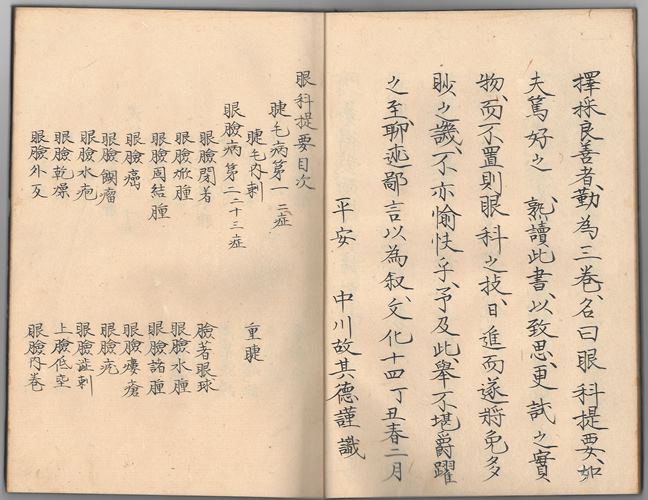 擇採良善者、勤為三卷、名曰眼科提要、如
夫篤好之 熟讀此書、以致思、更試之實
物、而不置、則眼科之技、日進而遂將免多
眇之譏、不亦愉快乎、予及此舉、不堪爵躍
之至、聊述鄙言以為叙、文化十四丁丑春二月
平安 中川故其德謹識
眼科提要目次
睫毛病第一 二症
睫毛内刺 重睫
眼臉病第二 二十三症
眼臉閉著 臉著眼球
眼臉焮腫 眼臉水腫
眼臉固結腫 眼臉諸腫
眼臉癌 眼臉瘻瘡
眼臉餬瘤 眼臉疣
眼臉水疱 眼臉澁刺
眼臉乾燥 上臉低垂
眼臉外反 眼臉内卷